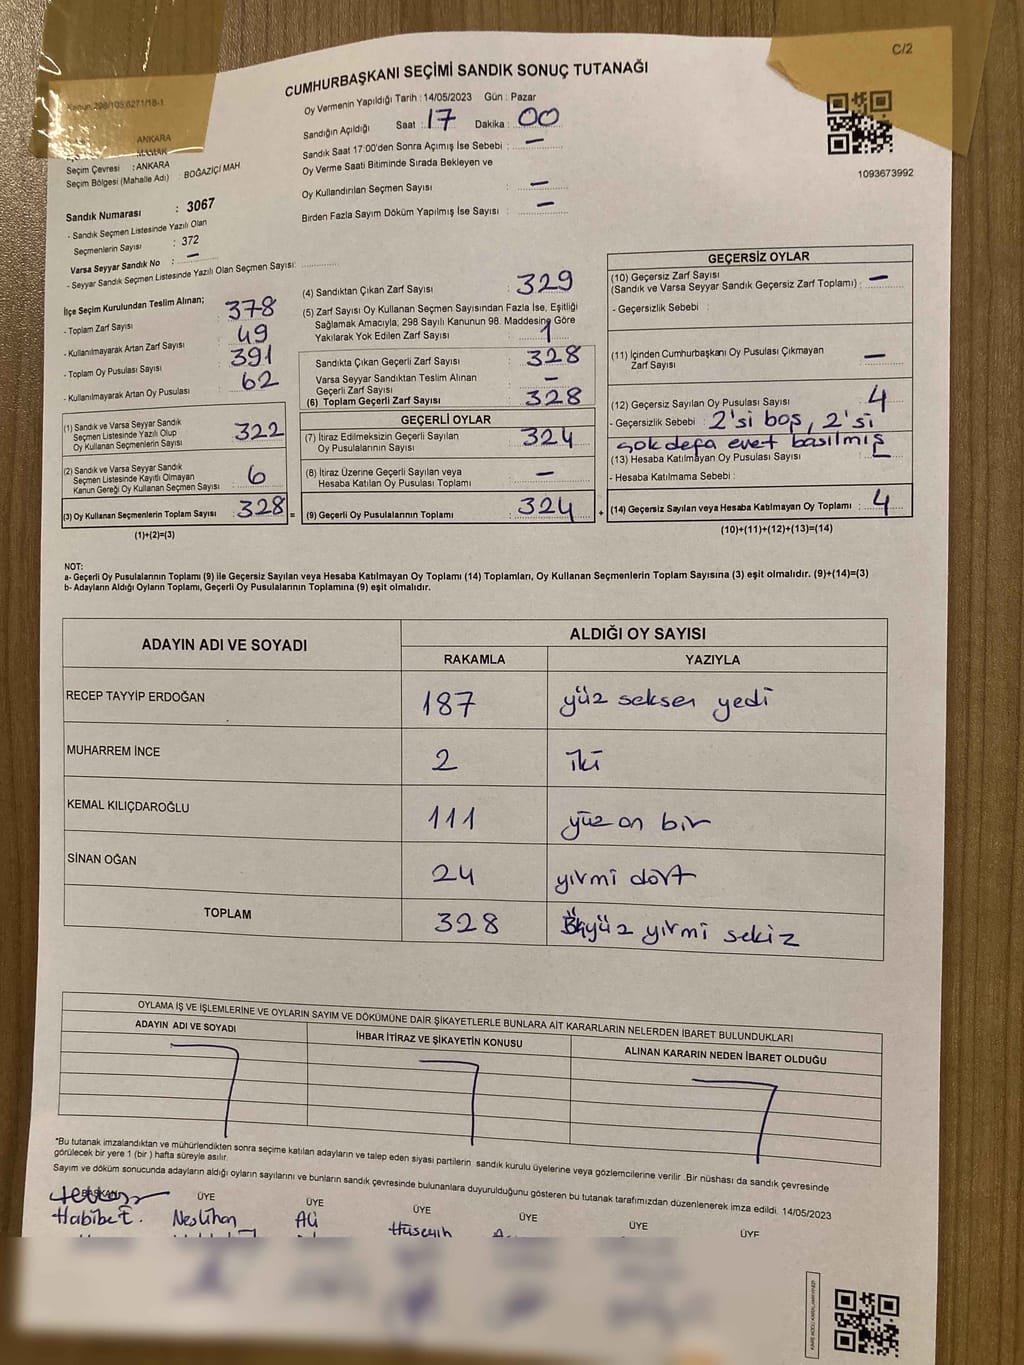 C/2
Kanun 298/105;6271/18-1
CUMHURBAŞKANI SEÇİMİ SANDIK SONUÇ TUTANAĞI
Oy Vermenin Yapıldığı Tarih : 14/05/2023 Gün : Pazar
Sandığın Açıldığı Saat : 17 Dakika : 00
Sandık Saat 17:00'den Sonra Açımış İse Sebebi : —
Oy Verme Saati Bitiminde Sırada Bekleyen ve
Oy Kullandırılan Seçmen Sayısı : —
Birden Fazla Sayım Döküm Yapılmış İse Sayısı : —
1093673992
ANKARA
Seçim Çevresi : ANKARA
Seçim Bölgesi (Mahalle Adı) : BOĞAZİÇİ MAH
Sandık Numarası : 3067
- Sandık Seçmen Listesinde Yazılı Olan
Seçmenlerin Sayısı : 372
Varsa Seyyar Sandık No : —
- Seyyar Sandık Seçmen Listesinde Yazılı Olan Seçmen Sayısı:
İlçe Seçim Kurulundan Teslim Alınan;
- Toplam Zarf Sayısı 378
- Kullanılmayarak Artan Zarf Sayısı 49
- Toplam Oy Pusulası Sayısı 391
- Kullanılmayarak Artan Oy Pusulası 62
(1) Sandık ve Varsa Seyyar Sandık
Seçmen Listesinde Yazılı Olup
Oy Kullanan Seçmenlerin Sayısı 322
(2) Sandık ve Varsa Seyyar Sandık
Seçmen Listesinde Kayıtlı Olmayan
Kanun Gereği Oy Kullanan Seçmen Sayısı 6
(3) Oy Kullanan Seçmenlerin Toplam Sayısı 328 =
(1)+(2)=(3)
(4) Sandıktan Çıkan Zarf Sayısı : 329
(5) Zarf Sayısı Oy Kullanan Seçmen Sayısından Fazla İse, Eşitliği
Sağlamak Amacıyla, 298 Sayılı Kanunun 98. Maddesine Göre
Yakılarak Yok Edilen Zarf Sayısı : 1
Sandıkta Çıkan Geçerli Zarf Sayısı : 328
Varsa Seyyar Sandıktan Teslim Alınan
Geçerli Zarf Sayısı : —
(6) Toplam Geçerli Zarf Sayısı : 328
GEÇERLİ OYLAR
(7) İtiraz Edilmeksizin Geçerli Sayılan
Oy Pusulalarının Sayısı : 324
(8) İtiraz Üzerine Geçerli Sayılan veya
Hesaba Katılan Oy Pusulası Toplamı : —
(9) Geçerli Oy Pusulalarının Toplamı : 324 +
GEÇERSİZ OYLAR
(10) Geçersiz Zarf Sayısı
(Sandık ve Varsa Seyyar Sandık Geçersiz Zarf Toplamı) : —
- Geçersizlik Sebebi :
(11) İçinden Cumhurbaşkanı Oy Pusulası Çıkmayan
Zarf Sayısı : —
(12) Geçersiz Sayılan Oy Pusulası Sayısı : 4
- Geçersizlik Sebebi : 2'si boş, 2'si
çok defa evet basılmış
(13) Hesaba Katılmayan Oy Pusulası Sayısı :
- Hesaba Katılmama Sebebi :
(14) Geçersiz Sayılan veya Hesaba Katılmayan Oy Toplamı : 4
(10)+(11)+(12)+(13)=(14)
NOT:
a- Geçerli Oy Pusulalarının Toplamı (9) ile Geçersiz Sayılan veya Hesaba Katılmayan Oy Toplamı (14) Toplamları, Oy Kullanan Seçmenlerin Toplam Sayısına (3) eşit olmalıdır. (9)+(14)=(3)
b- Adayların Aldığı Oyların Toplamı, Geçerli Oy Pusulalarının Toplamına (9) eşit olmalıdır.
ADAYIN ADI VE SOYADI ALDIĞI OY SAYISI
RAKAMLA YAZIYLA
RECEP TAYYİP ERDOĞAN 187 yüz seksen yedi
MUHARREM İNCE 2 iki
KEMAL KILIÇDAROĞLU 111 yüz on bir
SİNAN OĞAN 24 yirmi dört
TOPLAM 328 Üçyüz yirmi sekiz
OYLAMA İŞ VE İŞLEMLERİNE VE OYLARIN SAYIM VE DÖKÜMÜNE DAİR ŞİKAYETLERLE BUNLARA AİT KARARLARIN NELERDEN İBARET BULUNDUKLARI
ADAYIN ADI VE SOYADI İHBAR İTİRAZ VE ŞİKAYETİN KONUSU ALINAN KARARIN NEDEN İBARET OLDUĞU
*Bu tutanak imzalandıktan ve mühürlendikten sonra seçime katılan adayların ve talep eden siyasi partilerin sandık kurulu üyelerine veya gözlemcilerine verilir. Bir nüshası da sandık çevresinde
görülecek bir yere 1 (bir) hafta süreyle asılır.
Sayım ve döküm sonucunda adayların aldığı oyların sayılarını ve bunların sandık çevresinde bulunanlara duyurulduğunu gösteren bu tutanak tarafımızdan düzenlenerek imza edildi. 14/05/2023
BAŞKAN ÜYE ÜYE ÜYE ÜYE ÜYE ÜYE
Habibe E. Neslihan Ali Hüseyin